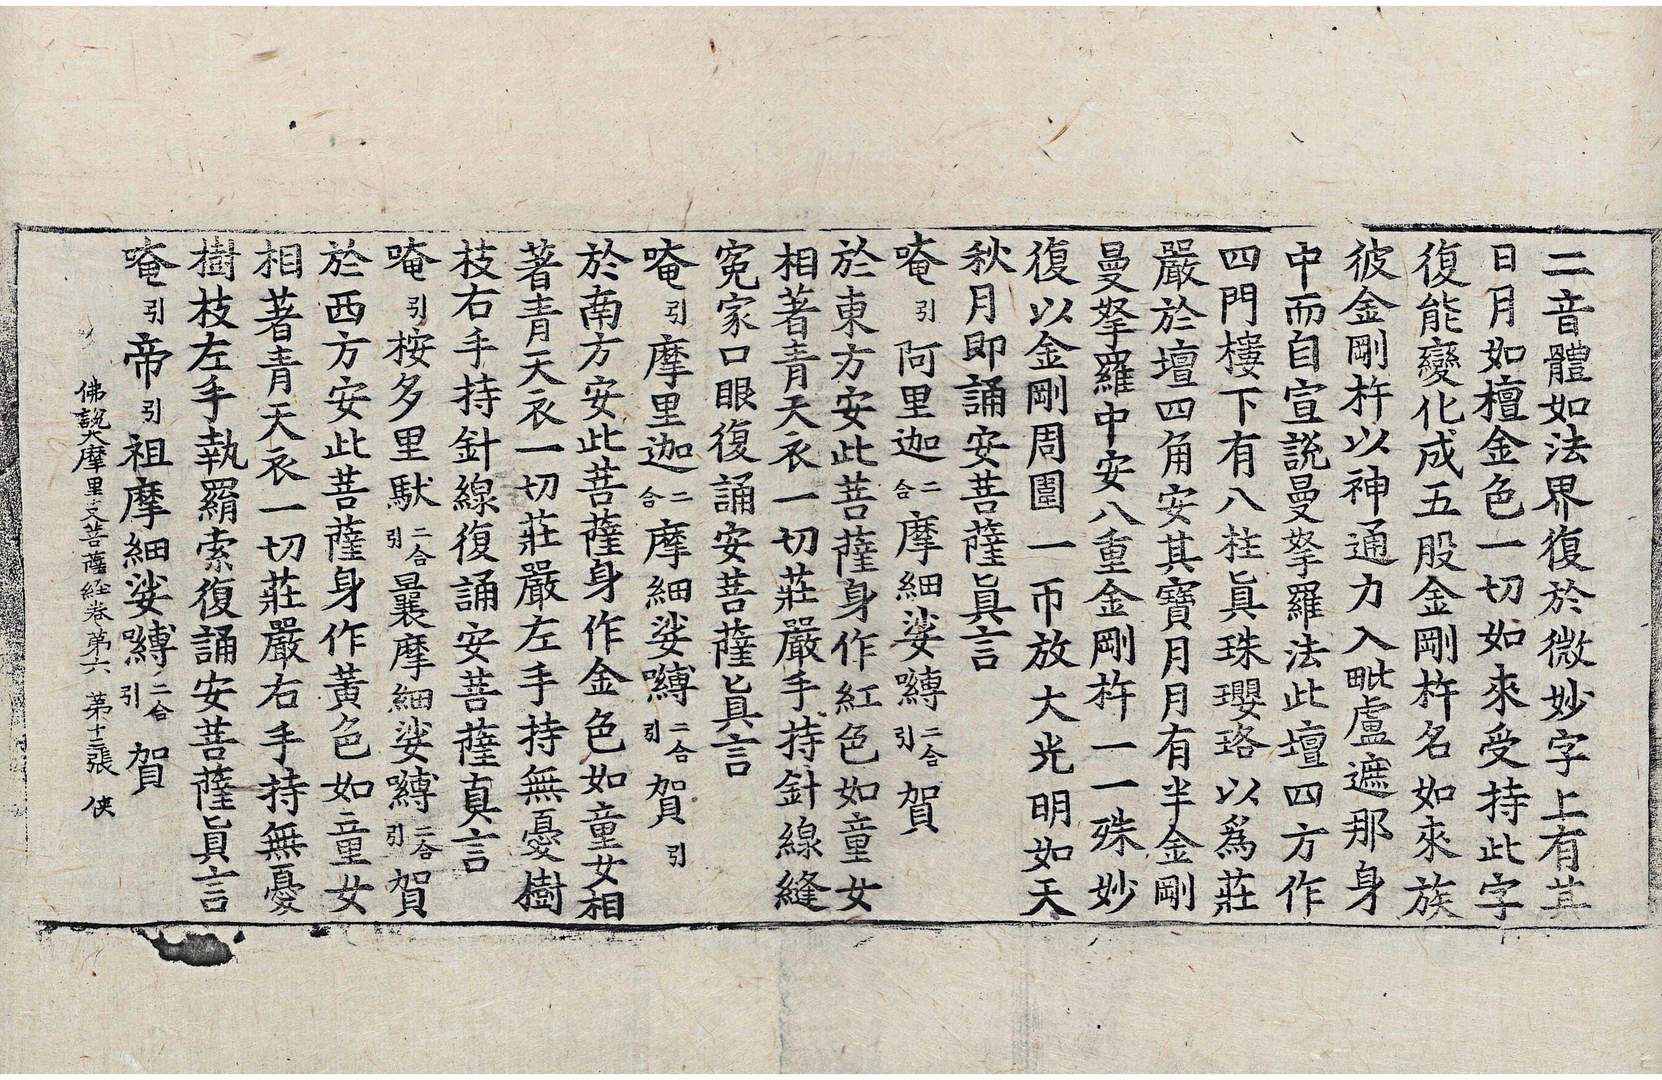 二音體如法界復於微妙字上有其
日月如檀金色一切如來受持此字
復能變化成五股金剛杵名如來族
彼金剛杵以神通力入毗盧遮那身
中而自宣說曼拏羅法此壇四方作
四門樓下有八柱眞珠瓔珞以爲莊
嚴於壇四角安其寶月月有半金剛
曼拏羅中安八重金剛杵一一殊妙
復以金剛周圍一帀放大光明如天
秋月即誦安菩薩眞言
唵引阿里迦二合摩細娑嚩二合引賀
於東方安此菩薩身作紅色如童女
相著青天衣一切莊嚴手持針線縫
冤家口眼復誦安菩薩眞言
唵引摩里迦二合摩細娑嚩二合引賀引
於南方安此菩薩身作金色如童女相
著青天衣一切莊嚴左手持無憂樹
枝右手持針線復誦安菩薩真言
唵引桉多里馱二合引曩摩細娑嚩二合引賀
於西方安此菩薩身作黃色如童女
相著青天衣一切莊嚴右手持無憂
樹枝左手執羂索復誦安菩薩眞言
唵引帝引祖摩細娑嚩二合引賀
佛說大摩里支菩薩經卷第六 第十三張 俠